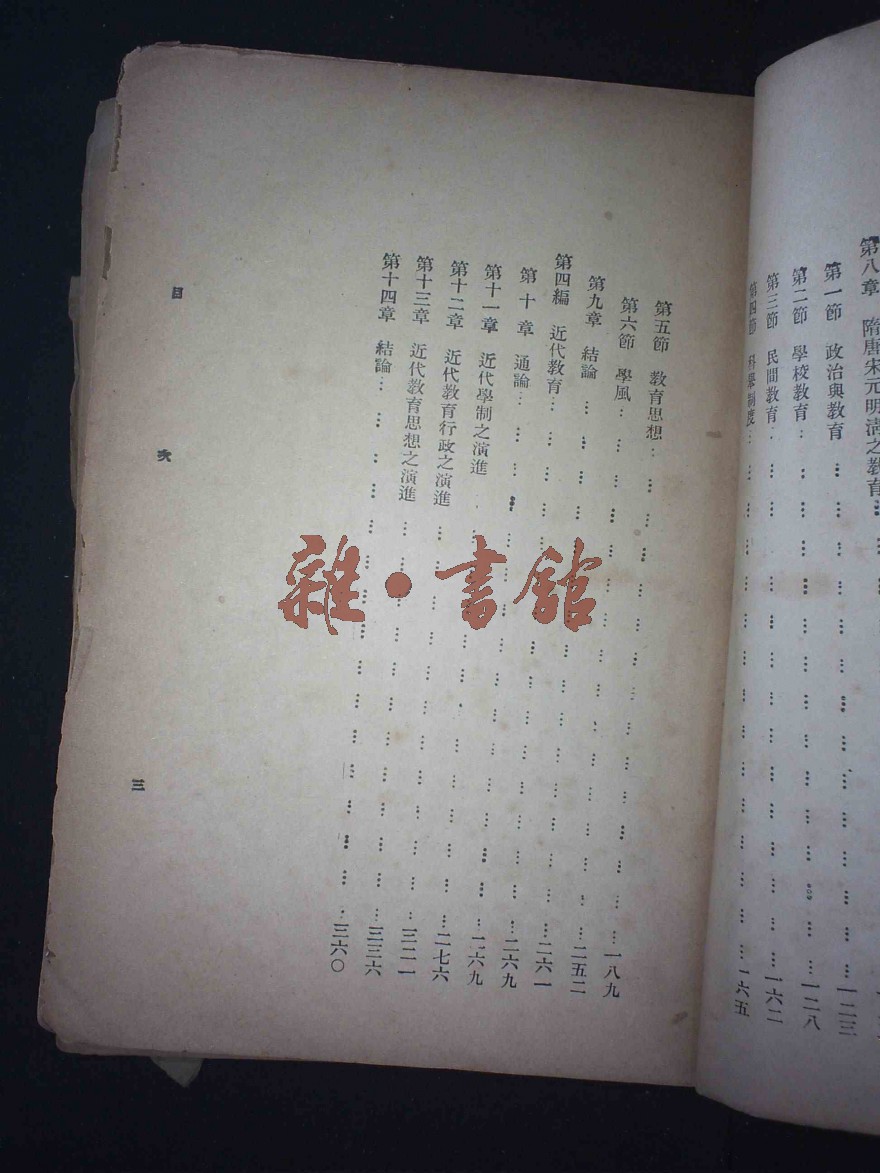 第八章 隋唐宋元明清之教育…
第一節 政治與教育……一二三
第二節 學校教育……一二八
第三節 民間教育……一六二
第四節 科舉制度……一六五
第五節 教育思想……一八九
第六節 學風……二五二
第九章 結論……二六一
第四編 近代教育……二六九
第十章 通論……二六九
第十一章 近代學制之演進……二七六
第十二章 近代教育行政之演進……三二一
第十三章 近代教育思想之演進……三三六
第十四章 結論……三六〇
目 次 三
雜·書館